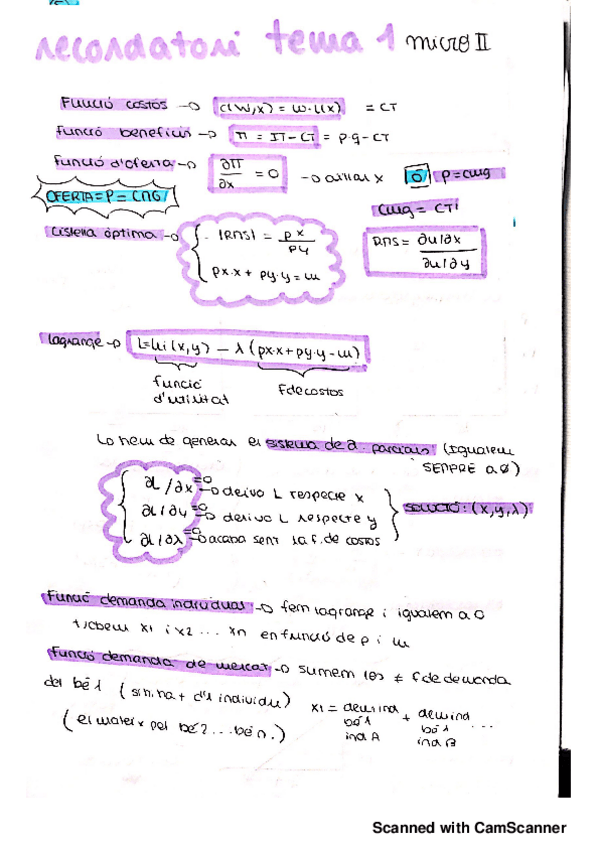 recordatori tema 1 micro II
Funció costos → C(W,x) = w·L(x) = CT
Funció beneficis → π = IT - CT = p·q - CT
Funció d'oferta → ∂π/∂x = 0 → aïllar x ó p = cmg
OFERTA = P = CMG
cmg = CT'
Cistella òptima → |RMS| = px/py
px·x + py·y = m
RMS = ∂u/∂x / ∂u/∂y
Lagrange → L = ui(x,y) - λ (px·x + py·y - m)
funció d'utilitat
F de costos
Lo hem de generar el sistema de d. parcials (igualem
SEMPRE a 0)
∂L/∂x =0 → derivo L respecte x
∂L/∂y =0 → derivo L respecte y
∂L/∂λ =0 → acaba sent la f. de costos
SOLUCIÓ: (x,y,λ)
Funció demanda individual → fem lagrange i igualem a 0
trobem x1 i x2 ... xn en funció de p i m
Funció demanda de mercat → sumem les ≠ f de demanda
del bé 1 (                d'1 individu) x1 = demind bé 1 ind A + demind bé 1 ind B ...
(el mateix pel bé 2 ... bé n.)
Scanned with CamScanner